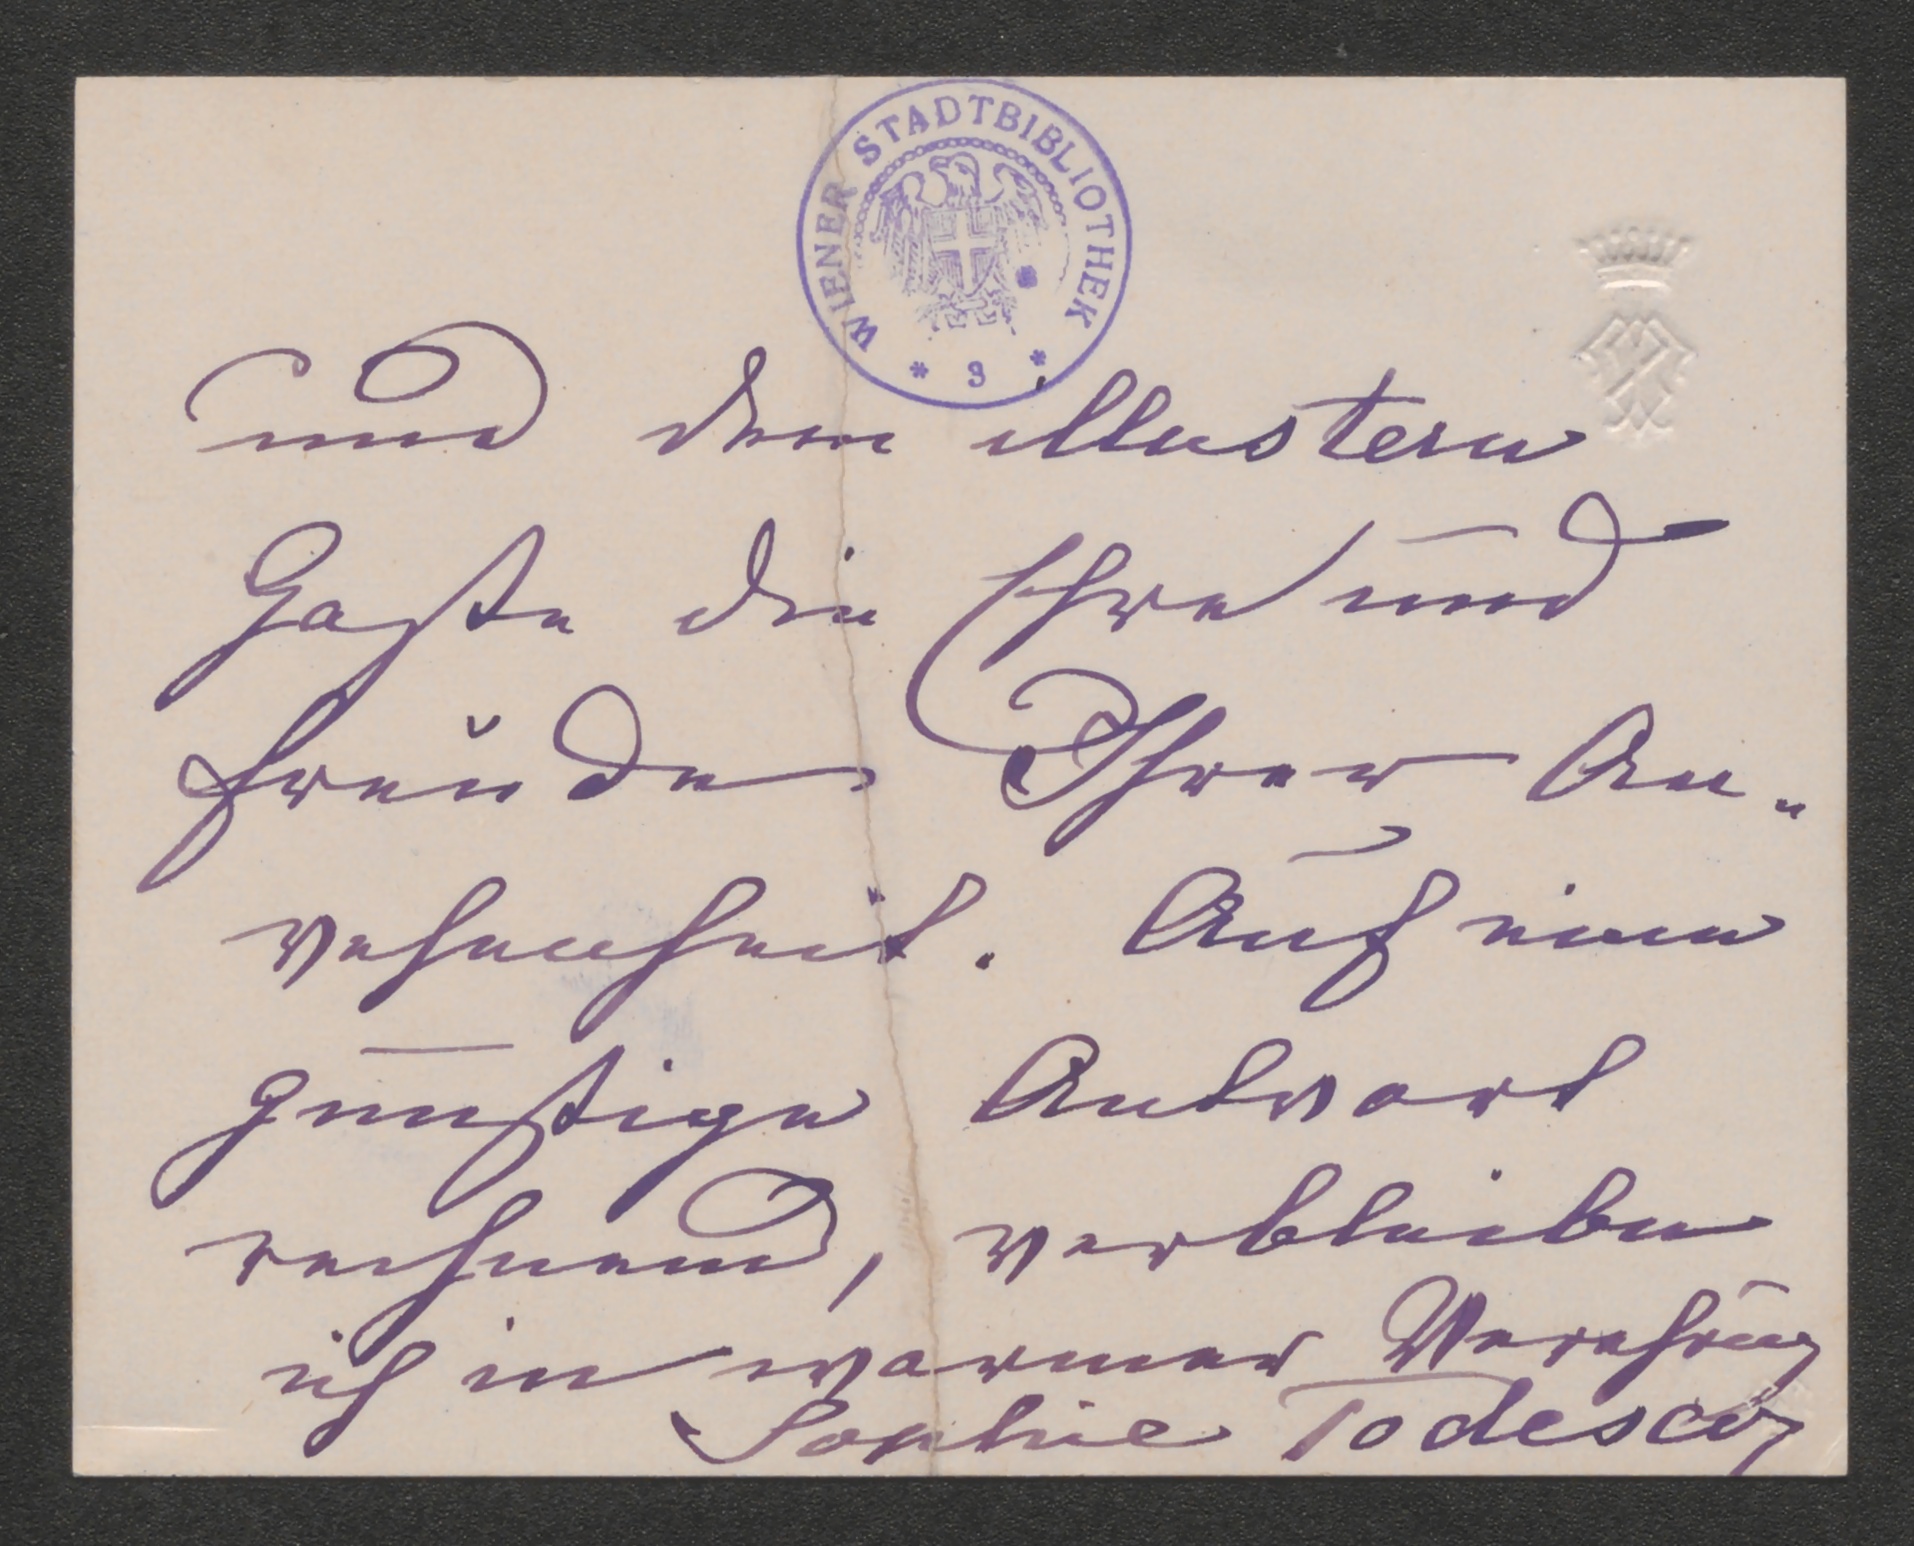 WIENER STADTBIBLIOTHEK
* 3 *
und dem illustern
Gaste die Ehre und
Freude Ihrer An-
wesenheit. Auf eine
günstige Antwort
rechnend, verbleibe
ich in warmer Verehrung
Sophie Todesco